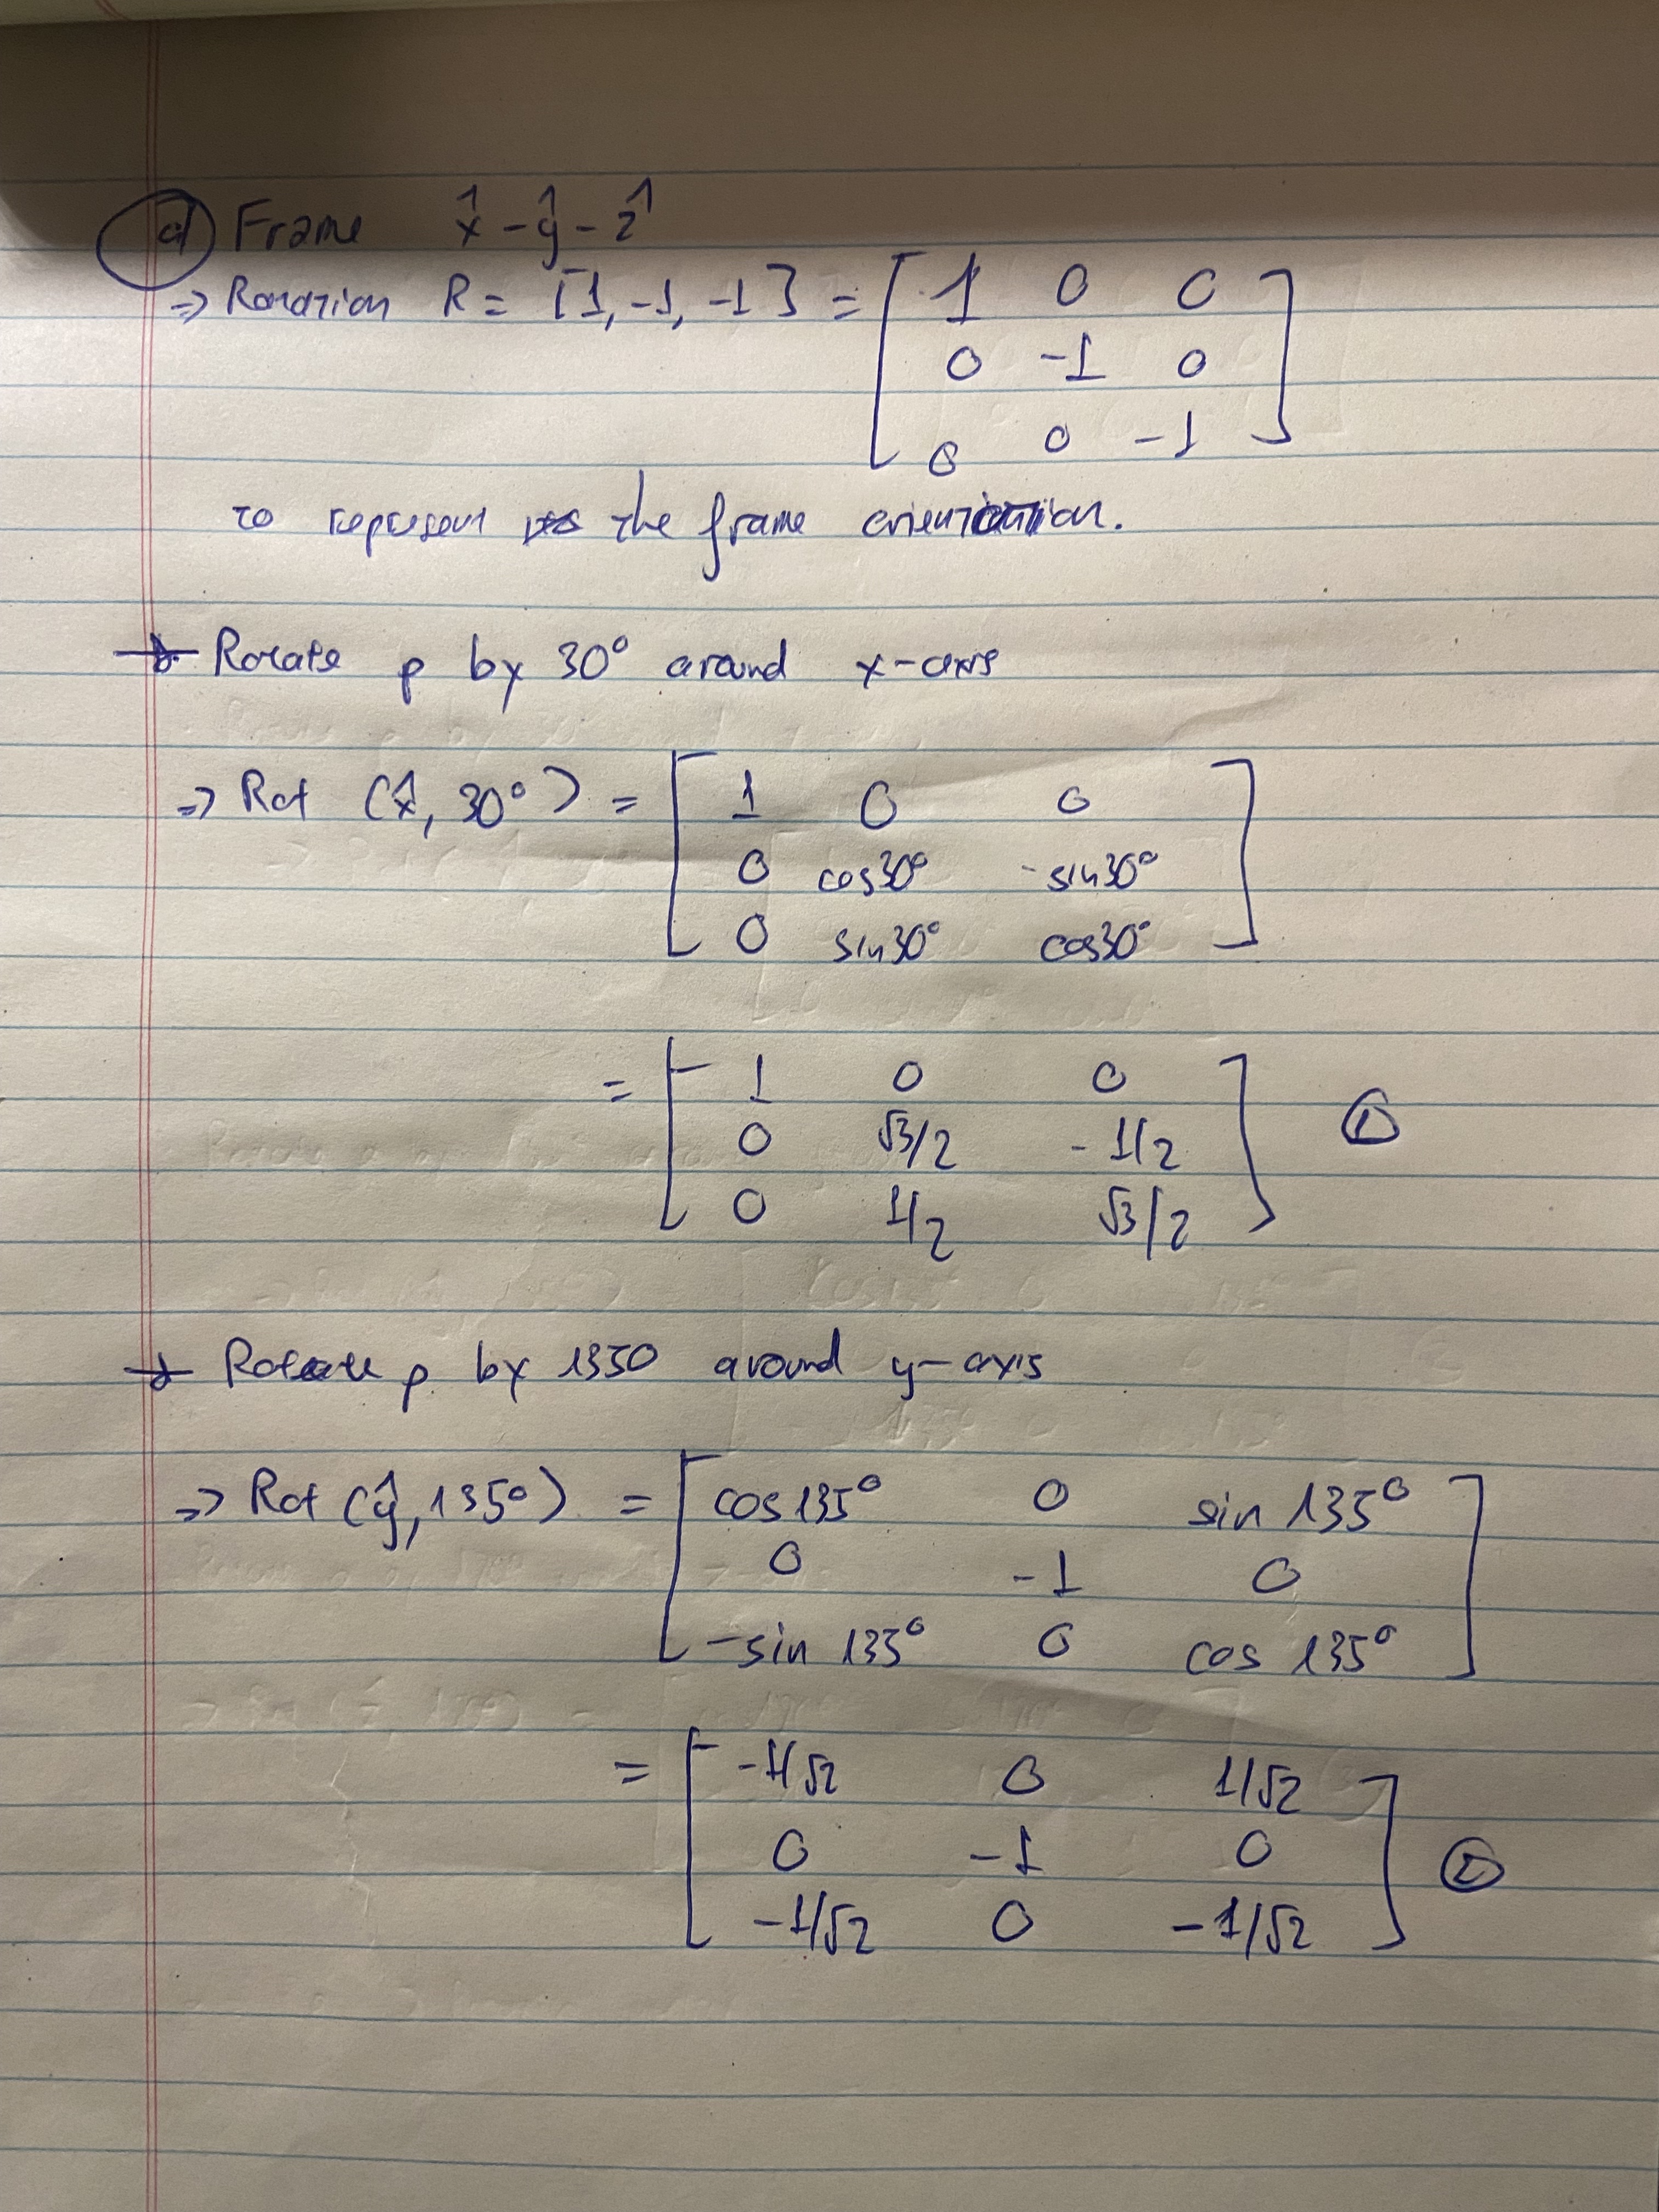 a) Frame x̂ - ŷ - ẑ
=> Rotation R = [1, -1, -1] = [ 1 0 0
0 -1 0
0 0 -1 ]
to represent the frame orientation.
→ Rotate p by 30° around x-axis
=> Rot (x̂, 30°) = [ 1 0 0
0 cos30° -sin30°
0 sin30° cos30° ]
= [ 1 0 0
0 √3/2 -1/2
0 1/2 √3/2 ] ①
→ Rotate p by 1350 around y-axis
=> Rot (ŷ, 135°) = [ cos135° 0 sin 135°
0 -1 0
-sin 135° 0 cos 135° ]
= [ -1/√2 0 1/√2
0 -1 0
-1/√2 0 -1/√2 ] ②